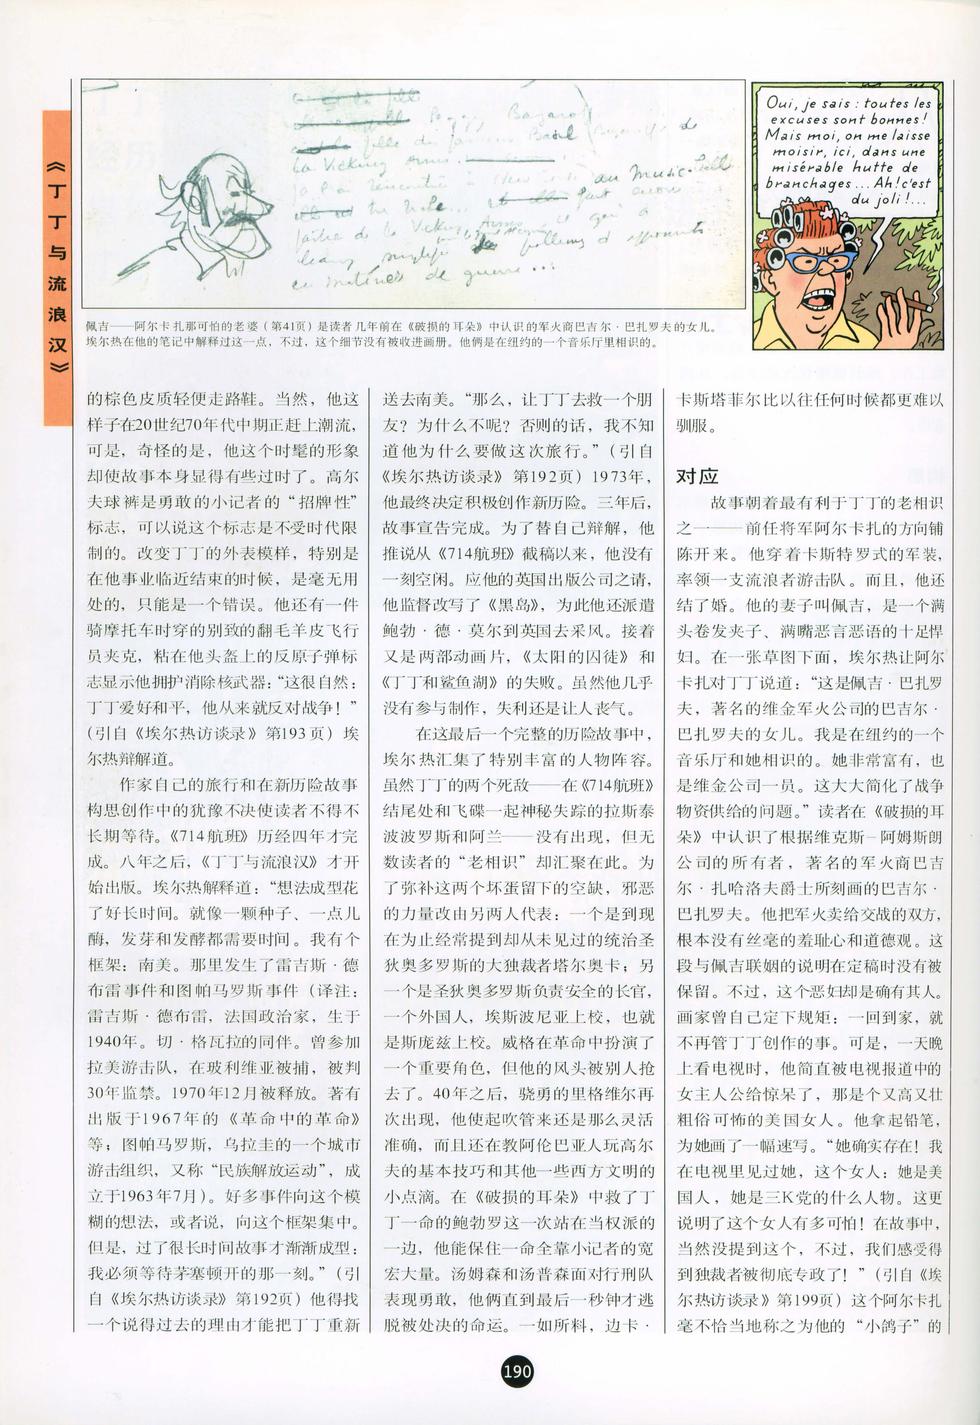 《丁丁与流浪汉》
Oui, je sais : toutes les
excuses sont bonnes !
Mais moi, on me laisse
moisir, ici, dans une
misérable hutte de
branchages ... Ah! c'est
du joli !...
佩吉——阿尔卡扎那可怕的老婆（第41页）是读者几年前在《破损的耳朵》中认识的军火商巴吉尔·巴扎罗夫的女儿。
埃尔热在他的笔记中解释过这一点，不过，这个细节没有被收进画册。他俩是在纽约的一个音乐厅里相识的。
的棕色皮质轻便走路鞋。当然，他这
样子在20世纪70年代中期正赶上潮流，
可是，奇怪的是，他这个时髦的形象
却使故事本身显得有些过时了。高尔
夫球裤是勇敢的小记者的“招牌性”
标志，可以说这个标志是不受时代限
制的。改变丁丁的外表模样，特别是
在他事业临近结束的时候，是毫无用
处的，只能是一个错误。他还有一件
骑摩托车时穿的别致的翻毛羊皮飞行
员夹克，粘在他头盔上的反原子弹标
志显示他拥护消除核武器：“这很自然：
丁丁爱好和平，他从来就反对战争！”
（引自《埃尔热访谈录》第193页）埃
尔热辩解道。
作家自己的旅行和在新历险故事
构思创作中的犹豫不决使读者不得不
长期等待。《714航班》历经四年才完
成。八年之后，《丁丁与流浪汉》才开
始出版。埃尔热解释道：“想法成型花
了好长时间。就像一颗种子、一点儿
酶，发芽和发酵都需要时间。我有个
框架：南美。那里发生了雷吉斯·德
布雷事件和图帕马罗斯事件（译注：
雷吉斯·德布雷，法国政治家，生于
1940年。切·格瓦拉的同伴。曾参加
拉美游击队，在玻利维亚被捕，被判
30年监禁。1970年12月被释放。著有
出版于1967年的《革命中的革命》
等；图帕马罗斯，乌拉圭的一个城市
游击组织，又称“民族解放运动”，成
立于1963年7月）。好多事件向这个模
糊的想法，或者说，向这个框架集中。
但是，过了很长时间故事才渐渐成型：
我必须等待茅塞顿开的那一刻。”（引
自《埃尔热访谈录》第192页）他得找
一个说得过去的理由才能把丁丁重新
送去南美。“那么，让丁丁去救一个朋
友？为什么不呢？否则的话，我不知
道他为什么要做这次旅行。”（引自
《埃尔热访谈录》第192页）1973年，
他最终决定积极创作新历险。三年后，
故事宣告完成。为了替自己辩解，他
推说从《714航班》截稿以来，他没有
一刻空闲。应他的英国出版公司之请，
他监督改写了《黑岛》，为此他还派遣
鲍勃·德·莫尔到英国去采风。接着
又是两部动画片，《太阳的囚徒》和
《丁丁和鲨鱼湖》的失败。虽然他几乎
没有参与制作，失利还是让人丧气。
在这最后一个完整的历险故事中，
埃尔热汇集了特别丰富的人物阵容。
虽然丁丁的两个死敌——在《714航班》
结尾处和飞碟一起神秘失踪的拉斯泰
波波罗斯和阿兰——没有出现，但无
数读者的“老相识”却汇聚在此。为
了弥补这两个坏蛋留下的空缺，邪恶
的力量改由另两人代表：一个是到现
在为止经常提到却从未见过的统治圣
狄奥多罗斯的大独裁者塔尔奥卡；另
一个是圣狄奥多罗斯负责安全的长官，
一个外国人，埃斯波尼亚上校，也就
是斯庞兹上校。威格在革命中扮演了
一个重要角色，但他的风头被别人抢
去了。40年之后，骁勇的里格维尔再
次出现，他使起吹管来还是那么灵活
准确，而且还在教阿伦巴亚人玩高尔
夫的基本技巧和其他一些西方文明的
小点滴。在《破损的耳朵》中救了丁
丁一命的鲍勃罗这一次站在当权派的
一边，他能保住一命全靠小记者的宽
宏大量。汤姆森和汤普森面对行刑队
表现勇敢，他俩直到最后一秒钟才逃
脱被处决的命运。一如所料，边卡·
卡斯塔菲尔比以往任何时候都更难以
驯服。
对应
故事朝着最有利于丁丁的老相识
之一——前任将军阿尔卡扎的方向铺
陈开来。他穿着卡斯特罗式的军装，
率领一支流浪者游击队。而且，他还
结了婚。他的妻子叫佩吉，是一个满
头卷发夹子、满嘴恶言恶语的十足悍
妇。在一张草图下面，埃尔热让阿尔
卡扎对丁丁说道：“这是佩吉·巴扎罗
夫，著名的维金军火公司的巴吉尔·
巴扎罗夫的女儿。我是在纽约的一个
音乐厅和她相识的。她非常富有，也
是维金公司一员。这大大简化了战争
物资供给的问题。”读者在《破损的耳
朵》中认识了根据维克斯－阿姆斯朗
公司的所有者，著名的军火商巴吉
尔·扎哈洛夫爵士所刻画的巴吉尔·
巴扎罗夫。他把军火卖给交战的双方，
根本没有丝毫的羞耻心和道德观。这
段与佩吉联姻的说明在定稿时没有被
保留。不过，这个恶妇却是确有其人。
画家曾自己定下规矩：一回到家，就
不再管丁丁创作的事。可是，一天晚
上看电视时，他简直被电视报道中的
女主人公给惊呆了，那是个又高又壮
粗俗可怖的美国女人。他拿起铅笔，
为她画了一幅速写。“她确实存在！我
在电视里见过她，这个女人：她是美
国人，她是三K党的什么人物。这更
说明了这个女人有多可怕！在故事中，
当然没提到这个，不过，我们感受得
到独裁者被彻底专政了！”（引自《埃
尔热访谈录》第199页）这个阿尔卡扎
毫不恰当地称之为他的“小鸽子”的
190